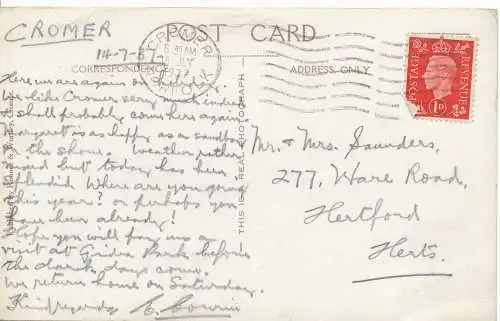 CROMER
14-7-37
POST CARD
CROMER
8.45 AM
JULY
1937
NORFOLK
CORRESPONDENCE
ADDRESS ONLY
POSTAGE
REVENUE
1D
THIS IS A REAL PHOTOGRAPH
Here we are again on holiday.
We like Cromer very much indeed
& shall probably come here again
Margaret is as happy as a sandboy
on the shore. Weather rather
mixed but today has been
splendid. Where are you going
this year? or perhaps you
have been already!
Hope you will pay us a
visit at Gidea Park before
the dark days come.
We return home on Saturday.
Kind regards
Mr. & Mrs. Saunders,
277, Ware Road,
Hertford
Herts.